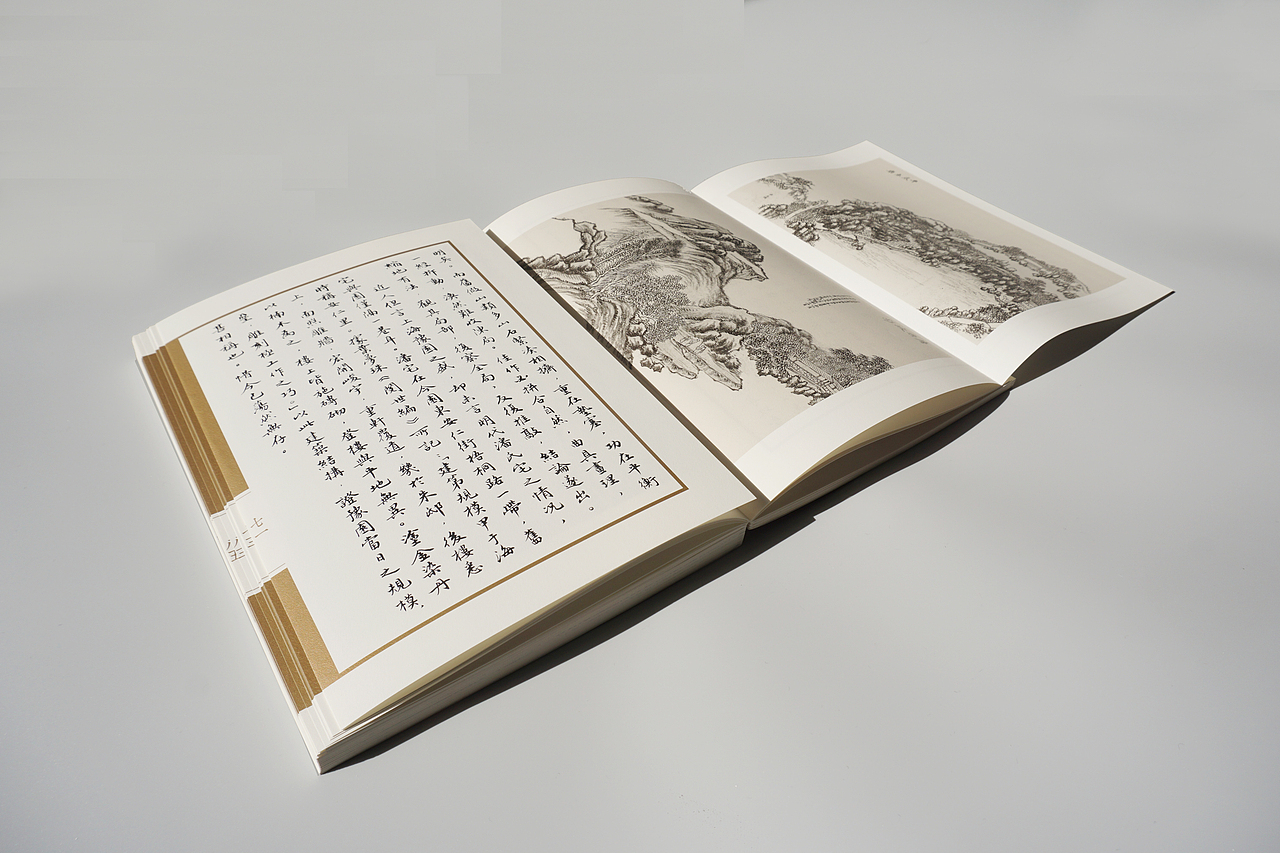 明矣。而舊假山類多山石緊密相擠，重在墊塞，功在平衡
一經拆動，渙然難收陳局。佳作必拼合自然，曲具畫理，
縮地有法，觀其局部，復察全局，反復推敲，結論遂出。
近人但言上海豫園之盛，却未言明代潘氏宅之情况，
宅與園僅隔一巷耳。潘宅在今園東安仁街梧桐路一帶，舊
時稱安仁里。據葉夢珠《閱世編》所記：“建第規模甲于海
上，面照雕牆，宏開峻宇，重軒覆道，幾於朱邸，後樓悉
以楠木為之，樓上皆施磚砌，登樓與平地無異。塗金染丹
堊，雕刻極工作之巧。”以此建築結構，證豫園當日之規模，
甚相稱也。惜今已蕩然無存。
七一